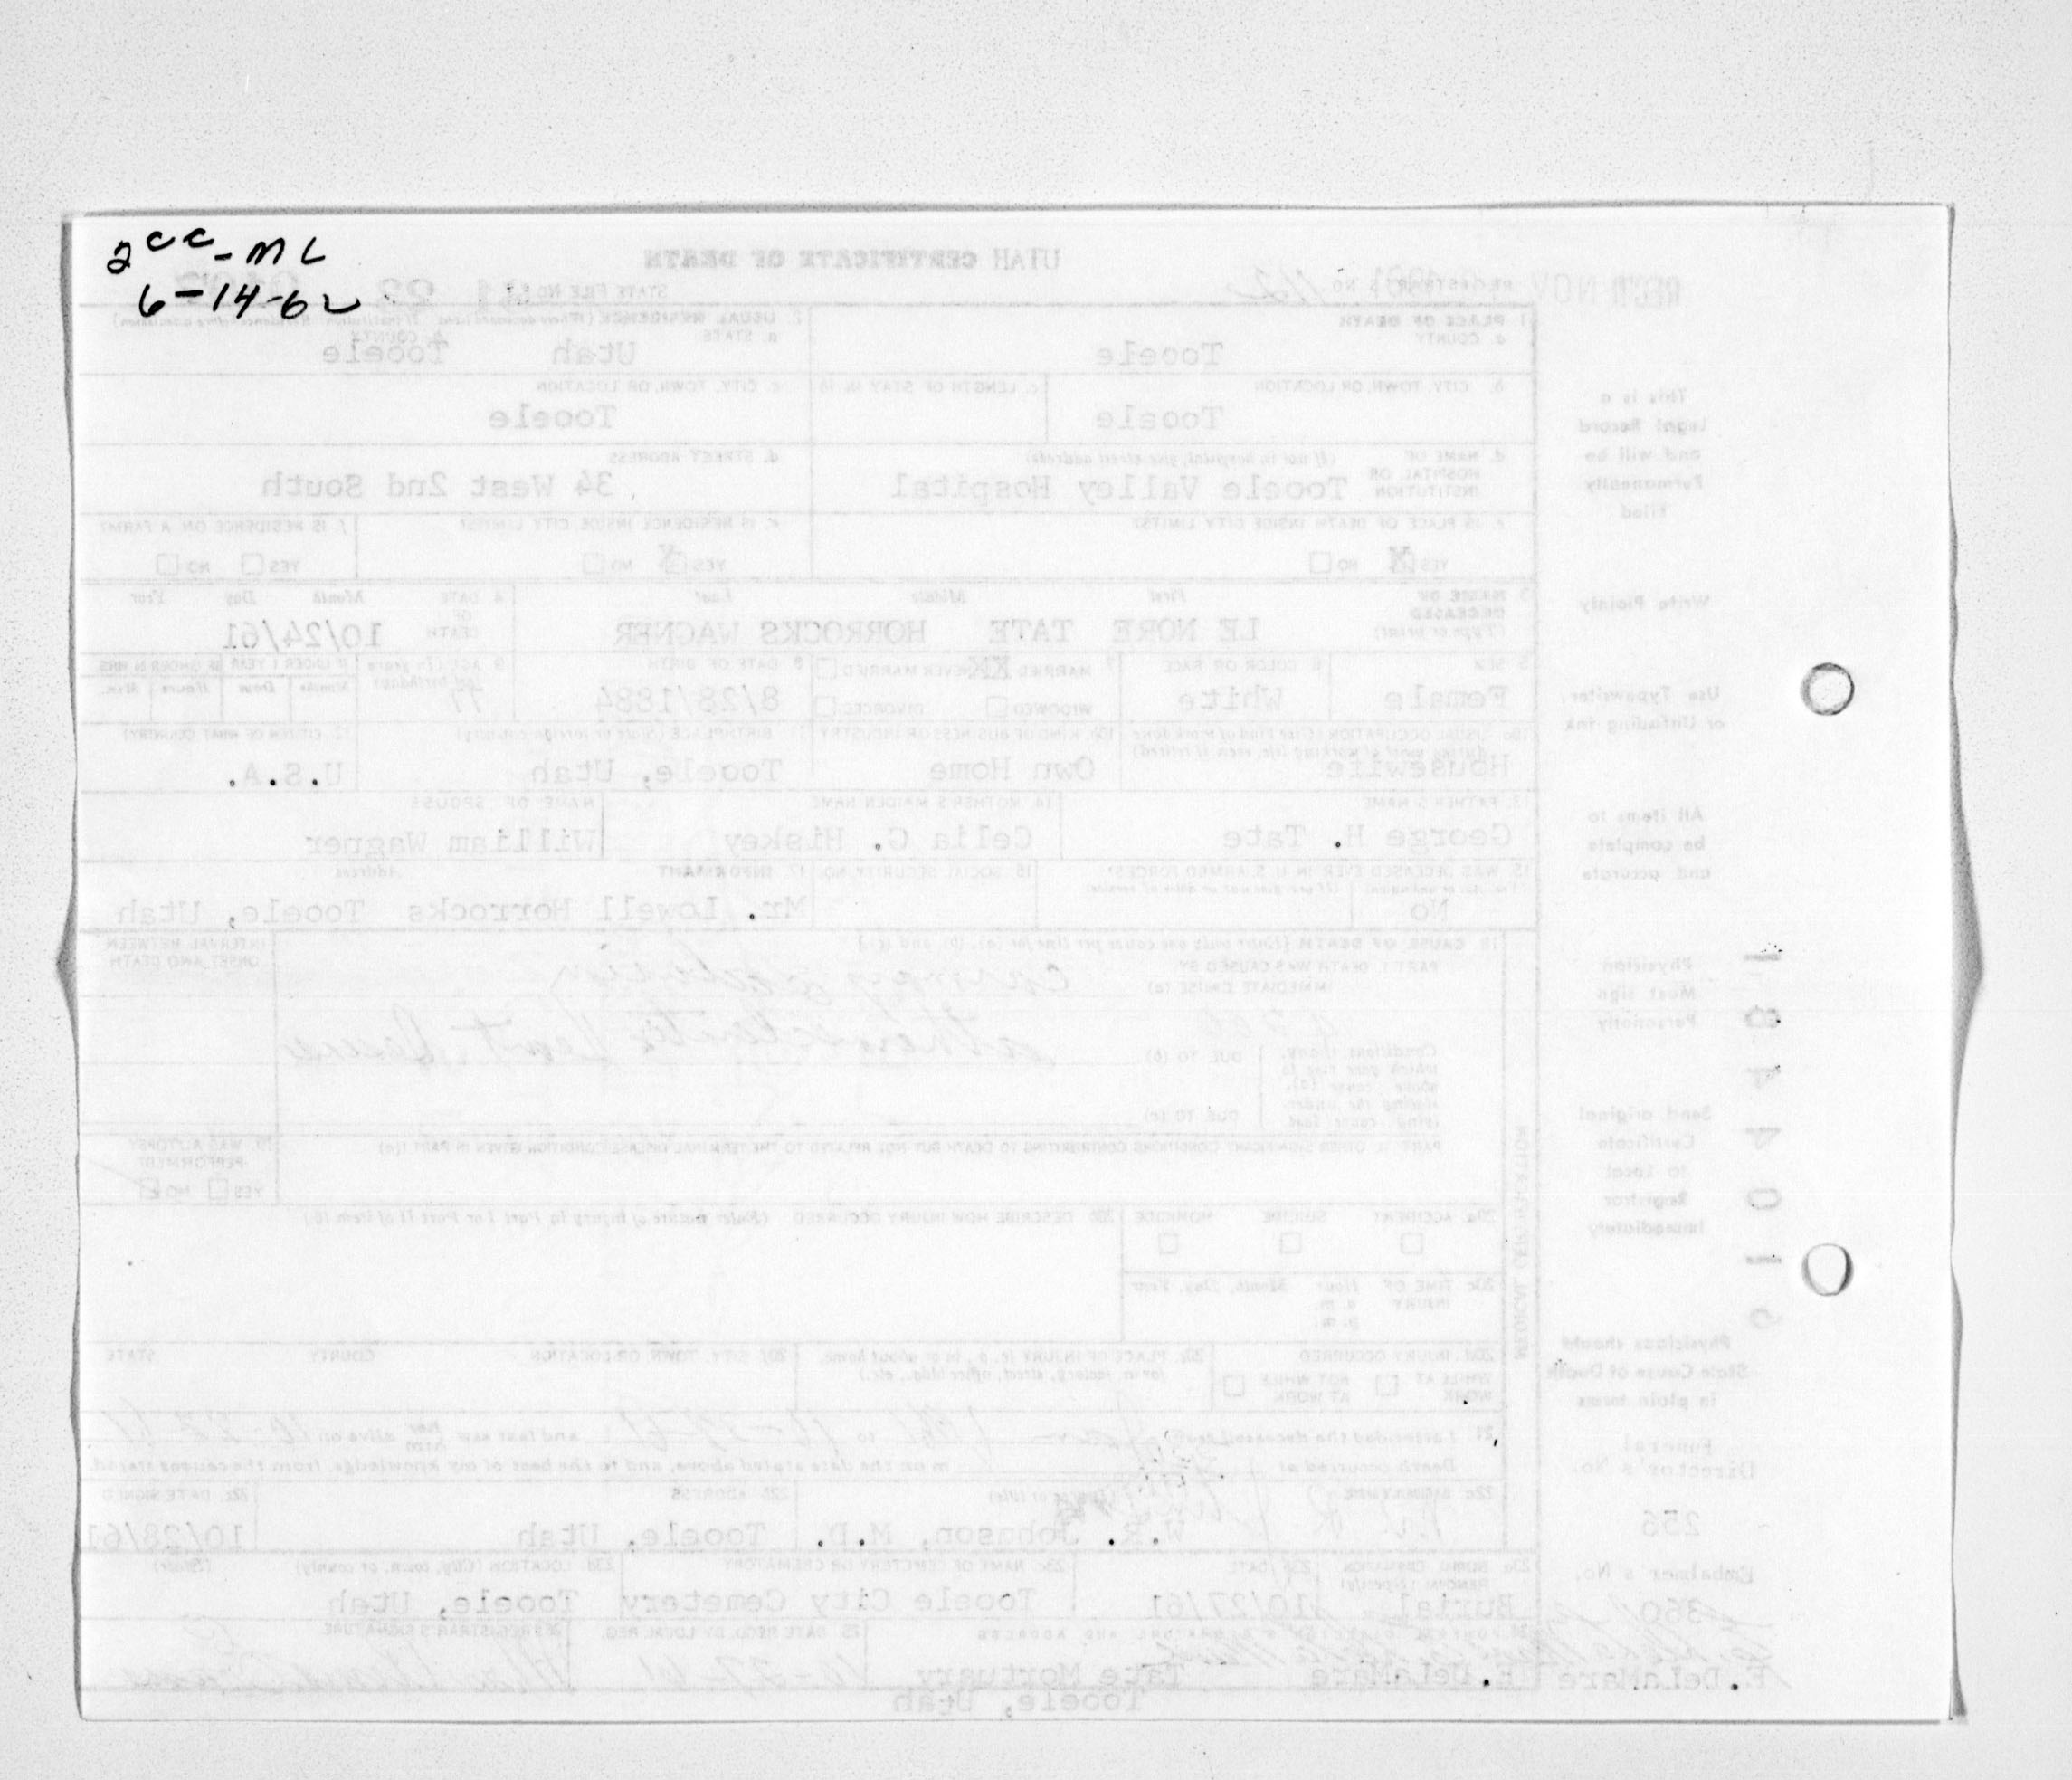 2cc - ML
6-14-62
UTAH CERTIFICATE OF DEATH
REC'D NOV
REGISTRAR'S NO. 162
STATE FILE NO.
1. PLACE OF DEATH
a. COUNTY
Tooele
2. USUAL RESIDENCE
a. STATE
Utah
b. COUNTY
Tooele
b. CITY, TOWN, OR LOCATION
Tooele
c. LENGTH OF STAY IN 1b
c. CITY, TOWN, OR LOCATION
Tooele
d. NAME OF HOSPITAL OR INSTITUTION (If not in hospital, give street address)
Tooele Valley Hospital
d. STREET ADDRESS
34 West 2nd South
e. IS PLACE OF DEATH INSIDE CITY LIMITS?
YES X NO
e. IS RESIDENCE INSIDE CITY LIMITS?
YES X NO
f. IS RESIDENCE ON A FARM?
YES NO
3. NAME OF DECEASED (Type or print)
First Middle Last
LE NORE TATE HORROCKS WAGNER
4. DATE OF DEATH Month Day Year
10/24/61
5. SEX
Female
6. COLOR OR RACE
White
7. MARRIED XX NEVER MARRIED
WIDOWED DIVORCED
8. DATE OF BIRTH
8/28/1884
9. AGE (In years last birthday)
77
IF UNDER 1 YEAR IF UNDER 24 HRS.
Months Days Hours Min.
10a. USUAL OCCUPATION (Give kind of work done during most of working life, even if retired)
Housewife
10b. KIND OF BUSINESS OR INDUSTRY
Own Home
11. BIRTHPLACE (State or foreign country)
Tooele, Utah
12. CITIZEN OF WHAT COUNTRY?
U.S.A.
13. FATHER'S NAME
George H. Tate
14. MOTHER'S MAIDEN NAME
Celia G. Hiskey
NAME OF SPOUSE
William Wagner
15. WAS DECEASED EVER IN U.S. ARMED FORCES?
No
16. SOCIAL SECURITY NO.
17. INFORMANT Address
Mr. Lowell Horrocks Tooele, Utah
18. CAUSE OF DEATH (Enter only one cause per line for (a), (b), and (c).)
INTERVAL BETWEEN ONSET AND DEATH
PART I. DEATH WAS CAUSED BY:
IMMEDIATE CAUSE (a)
Conditions, if any, which gave rise to above cause (a), stating the underlying cause last
DUE TO (b)
DUE TO (c)
PART II. OTHER SIGNIFICANT CONDITIONS CONTRIBUTING TO DEATH BUT NOT RELATED TO THE TERMINAL DISEASE CONDITION GIVEN IN PART I(a)
19. WAS AUTOPSY PERFORMED?
YES NO
20a. ACCIDENT SUICIDE HOMICIDE
20b. DESCRIBE HOW INJURY OCCURRED (Enter nature of injury in Part I or Part II of item 18)
20c. TIME OF INJURY Hour Month, Day, Year
a.m.
p.m.
20d. INJURY OCCURRED
WHILE AT WORK NOT WHILE AT WORK
20e. PLACE OF INJURY (e.g., in or about home, farm, factory, street, office bldg., etc.)
20f. CITY, TOWN OR LOCATION COUNTY STATE
MEDICAL CERTIFICATION
21. I attended the deceased from to and last saw alive on
Death occurred at m on the date stated above, and to the best of my knowledge, from the causes stated.
22a. SIGNATURE (Degree or title)
W.R. Johnson, M.D.
22b. ADDRESS
Tooele, Utah
22c. DATE SIGNED
10/28/61
23a. BURIAL, CREMATION, REMOVAL (Specify)
Burial
23b. DATE
10/27/61
23c. NAME OF CEMETERY OR CREMATORY
Tooele City Cemetery
23d. LOCATION (City, town, or county) (State)
Tooele, Utah
24. FUNERAL DIRECTOR'S SIGNATURE AND ADDRESS
E. DeLaMare Tate Mortuary
Tooele, Utah
25. DATE RECD. BY LOCAL REG.
26. REGISTRAR'S SIGNATURE
This is a
Legal Record
and will be
Permanently
Filed
Write Plainly
Use Typewriter,
or Unfading ink
All items to
be complete
and accurate
Physician
Must sign
Personally
Send original
Certificate
to Local
Registrar
Immediately
Physicians should
State Cause of Death
in plain terms
Funeral
Director's No.
256
Embalmer's No.
360
E. DeLaMare